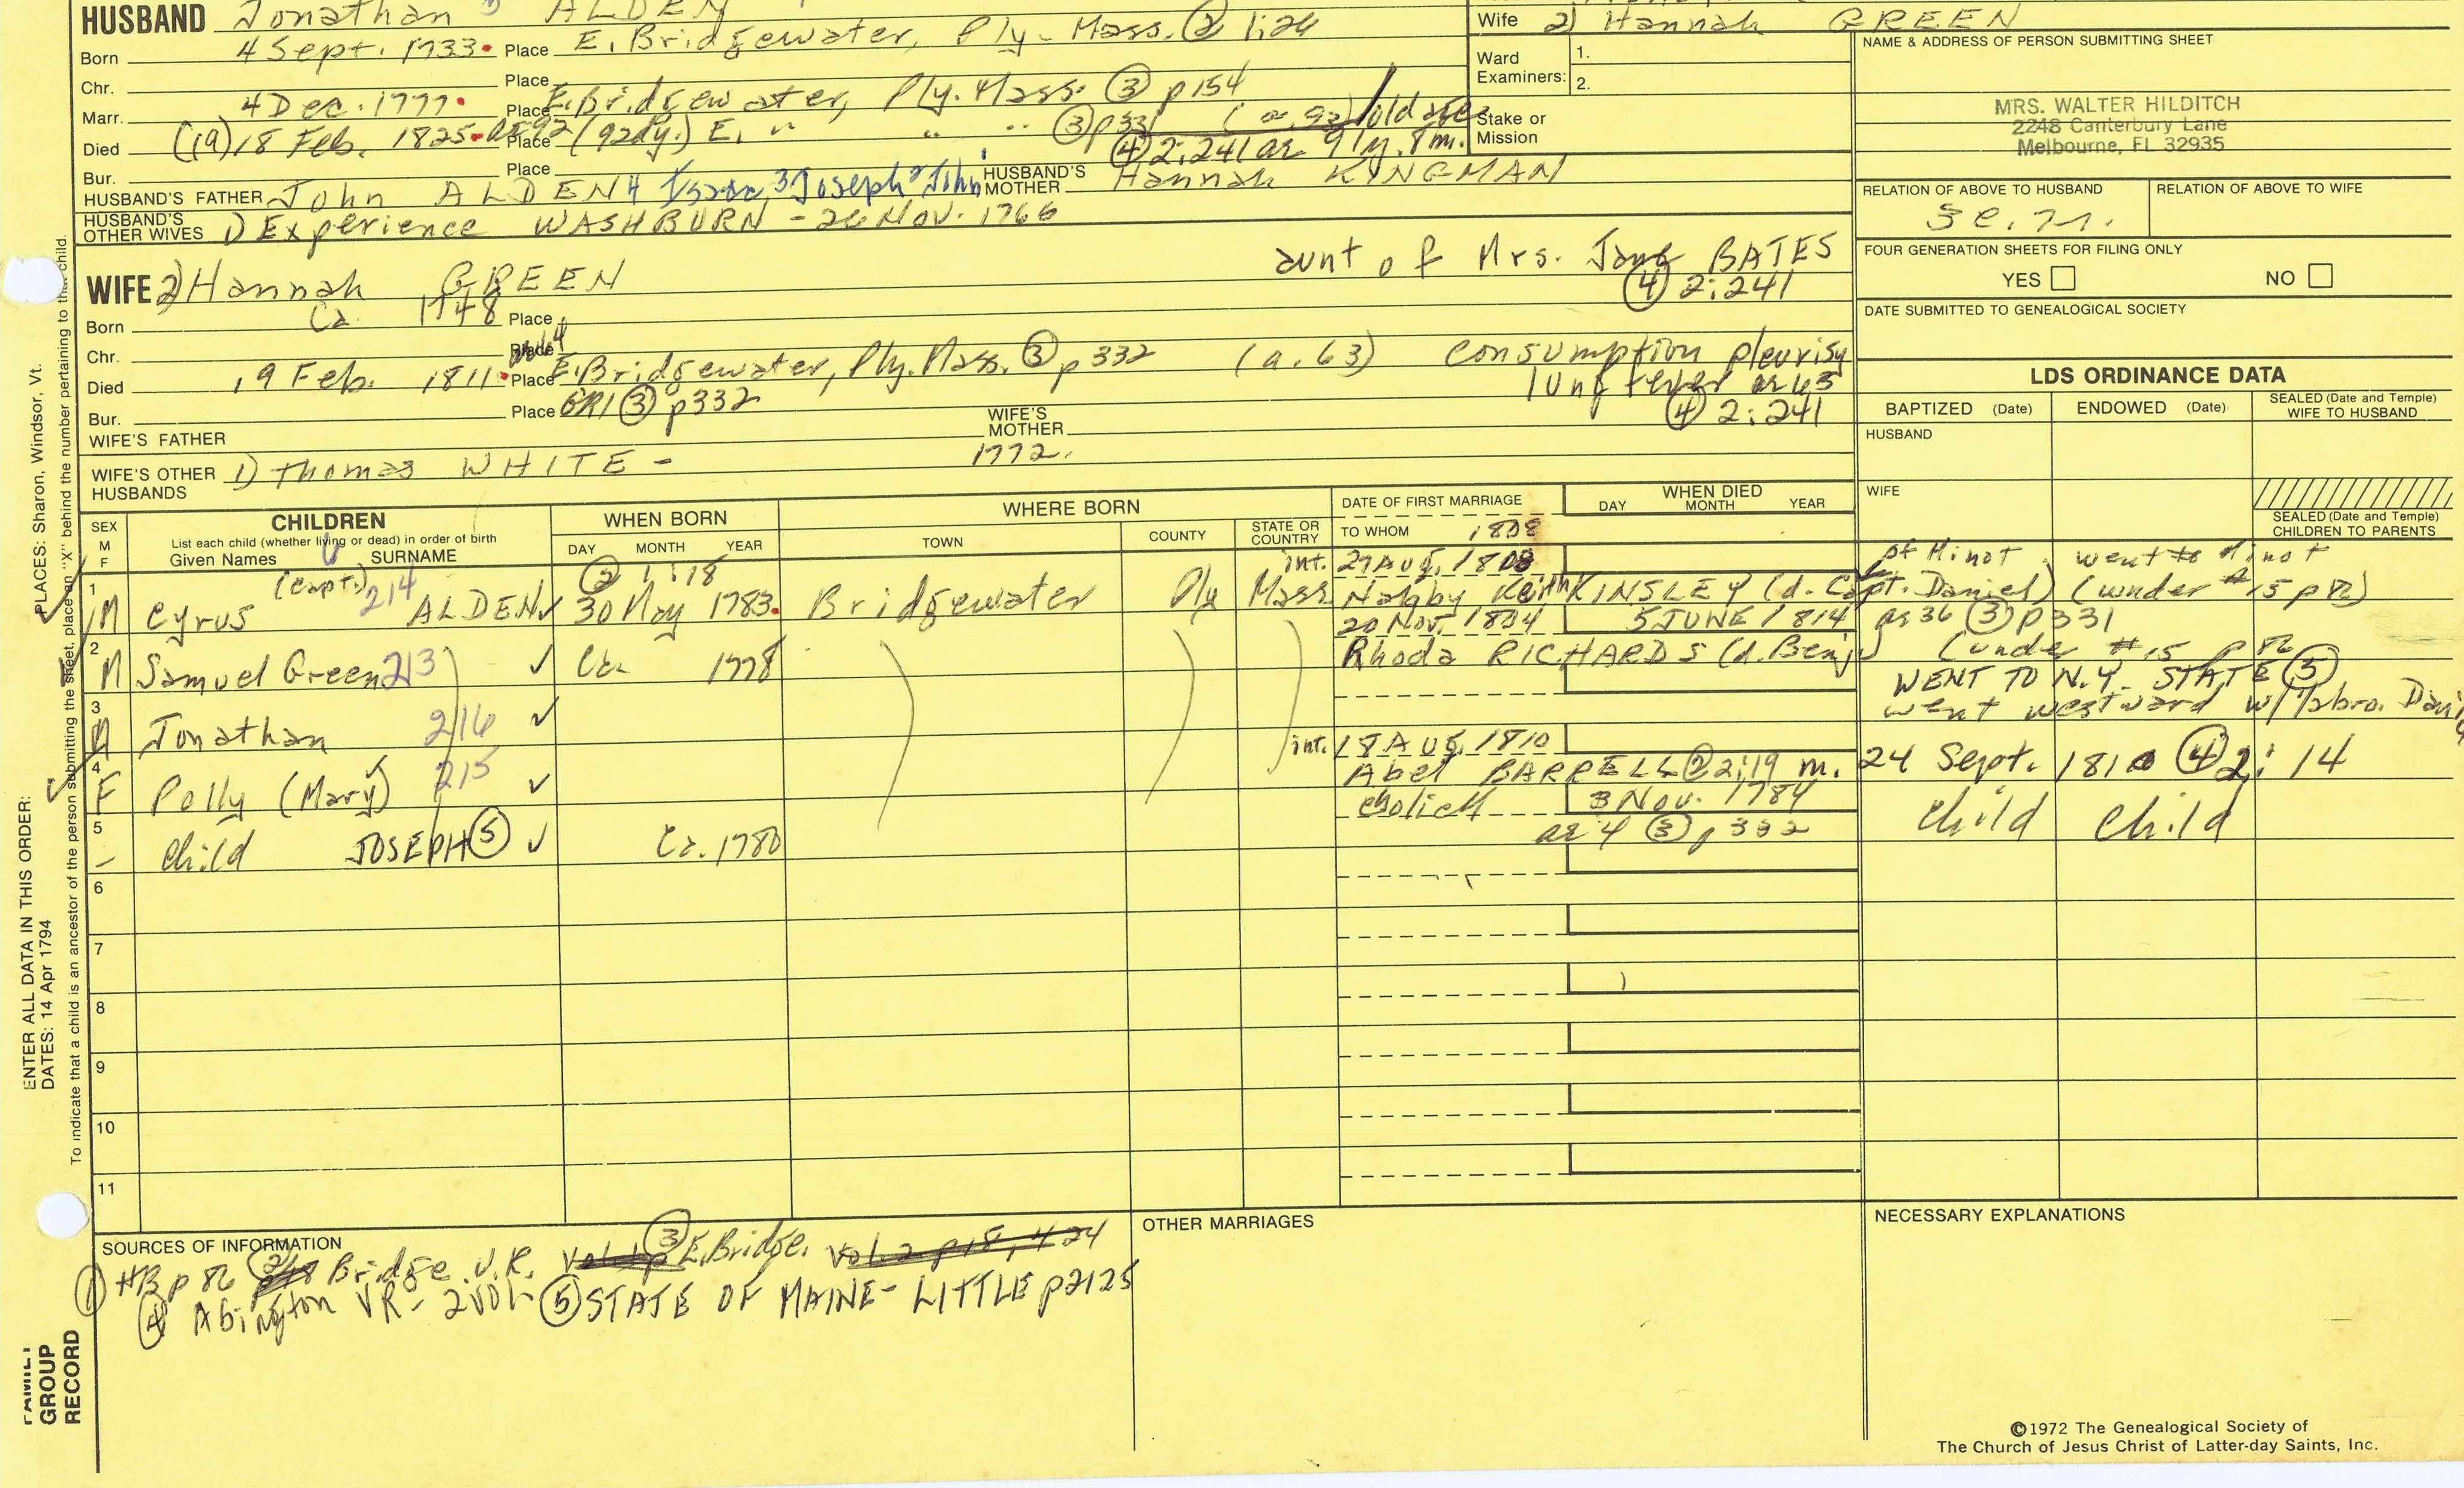 HUSBAND Jonathan 5 ALDEN
Wife 2) Hannah GREEN
Born 4 Sept. 1733. Place E. Bridgewater, Ply- Mass. ② 1:24
Ward Examiners: 1.
2.
NAME & ADDRESS OF PERSON SUBMITTING SHEET
Chr. Place
Marr. 4 Dec. 1777. Place E. Bridgewater, Ply. Mass. ③ p154
MRS. WALTER HILDITCH
2248 Canterbury Lane
Melbourne, FL 32935
Died (19) 18 Feb. 1825. ae 92 (92dy.) Place E. " " " ③ p331 (a. 92) old age
Stake or Mission
④ 2:241 ae 91y. 8m.
Bur. Place
HUSBAND'S FATHER John ALDEN 4 Isaac, 3 Joseph 2 John
HUSBAND'S MOTHER Hannah KINGMAN
RELATION OF ABOVE TO HUSBAND
RELATION OF ABOVE TO WIFE
HUSBAND'S OTHER WIVES 1) Experience WASHBURN - 26 Nov. 1766
FOUR GENERATION SHEETS FOR FILING ONLY
YES NO
aunt of Mrs. Jane BATES
④ 2:241
WIFE 2) Hannah GREEN
Born Ca 1748 Place
DATE SUBMITTED TO GENEALOGICAL SOCIETY
Chr. Place
Died 19 Feb. 1811. Place E. Bridgewater, Ply. Mass. ③ p332 (a. 63) consumption pleurisy
lung fever ae 63
Bur. Place GR1 ③ p332
④ 2:241
WIFE'S FATHER
WIFE'S MOTHER
WIFE'S OTHER HUSBANDS 1) Thomas WHITE - 1772.
LDS ORDINANCE DATA
BAPTIZED (Date) ENDOWED (Date) SEALED (Date and Temple) WIFE TO HUSBAND
HUSBAND
WIFE
SEALED (Date and Temple) CHILDREN TO PARENTS
SEX M F
CHILDREN
List each child (whether living or dead) in order of birth
Given Names SURNAME
WHEN BORN
DAY MONTH YEAR
WHERE BORN
TOWN COUNTY STATE OR COUNTRY
DATE OF FIRST MARRIAGE
TO WHOM 1808
WHEN DIED
DAY MONTH YEAR
② 1:18 int. 27 Aug. 1808 of Minot went to Minot
1 M (Capt.) Cyrus 214 ALDEN 30 May 1783. Bridgewater Ply Mass. Nabby Keith KINSLEY (d. Capt. Daniel) (under #15 p82)
20 Nov. 1804 5 JUNE 1814 ae 36 ③ p331
2 M Samuel Green 213 Ca. 1778 Rhoda RICHARDS (d. Benj) (under #15 p82
WENT TO N.Y. STATE ⑤
3 M Jonathan 216 went westward w/ bro.
int. 18 Aug. 1810
4 F Polly (Mary) 215 Abel BARRELL ② 2:19 m. 24 Sept. 1810 ④ 2:14
3 Nov. 1784
5 - Child JOSEPH ⑤ Ca. 1780 ae 4 ③ p332 child child
6
7
8
9
10
11
SOURCES OF INFORMATION
OTHER MARRIAGES
NECESSARY EXPLANATIONS
① HB p 86 ② Bridge. V.R. Vol. 1 p ③ E. Bridge. Vol. 2 p18, 424
④ Abington VR- 2 Vol- ⑤ STATE OF MAINE- LITTLE p2125
©1972 The Genealogical Society of
The Church of Jesus Christ of Latter-day Saints, Inc.
ENTER ALL DATA IN THIS ORDER:
DATES: 14 Apr 1794
PLACES: Sharon, Windsor, Vt.
To indicate that a child is an ancestor of the person submitting the sheet, place an "X" behind the number pertaining to that child.
FAMILY GROUP RECORD